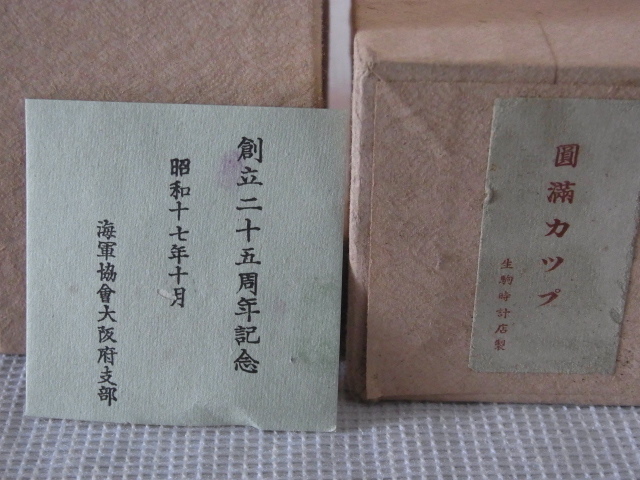 創立二十五周年記念
昭和十七年十月
海軍協會大阪府支部
圓滿カツプ
生駒時計店製